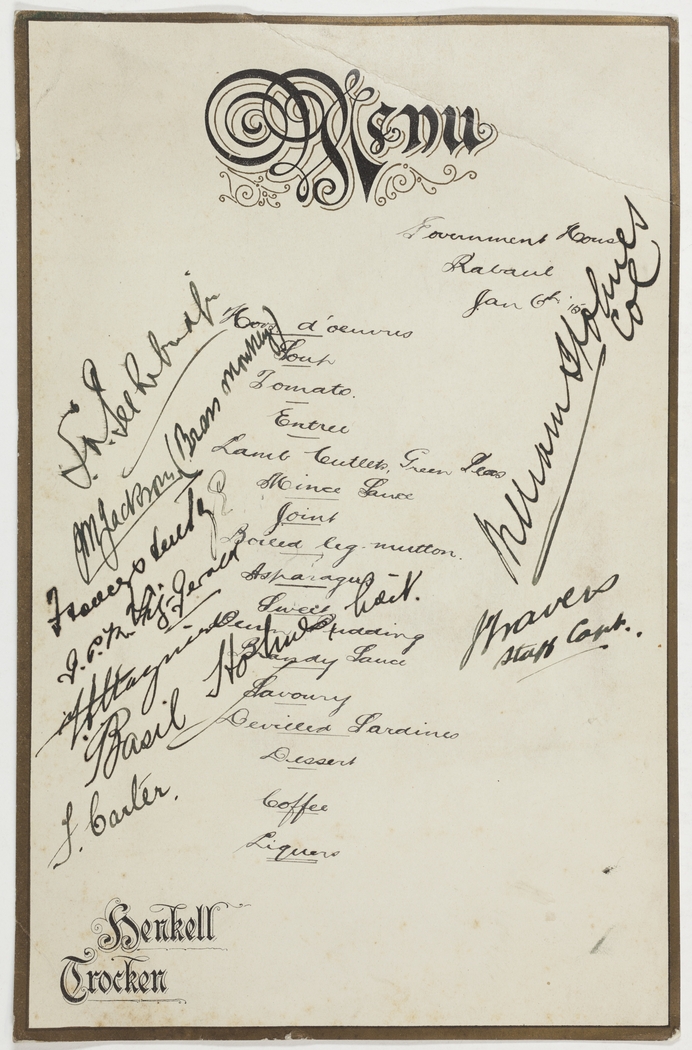 Menu
Government House
Rabaul
Jan 6th 15
Hors d'oeuvres
Soup
Tomato.
Entree
Lamb Cutlets, Green Peas
Mince Sauce
Joint
Boiled leg mutton.
Asparagus
Sweet
Plum Pudding
Brandy Sauce
Savoury
Devilled Sardines
Dessert
Coffee
Liquers
William Holmes
Col
JTravers
Staff Capt.
JM Jackson (Brass Monkey)
Fitz-Gerald
Basil Holmes Lieut.
F. Carter.
Henkell
Trocken